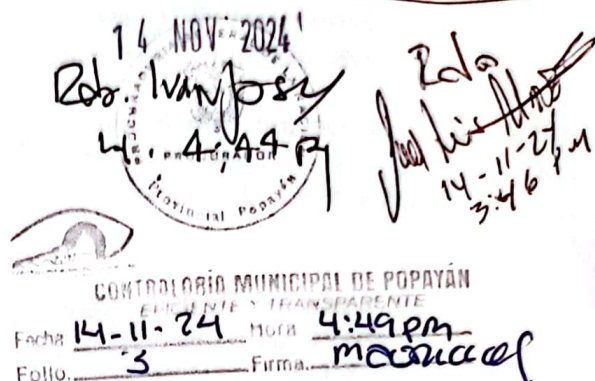 14 NOV 2024
Rdo. Ivan José
H. 4:44 P
PROCURADOR
Provincial Popayán
Rdo
14-11-24
3:46 PM
CONTRALORÍA MUNICIPAL DE POPAYÁN
EFICIENTE Y TRANSPARENTE
Fecha 14-11-24 Hora 4:49 pm
Folio. 3 Firma.